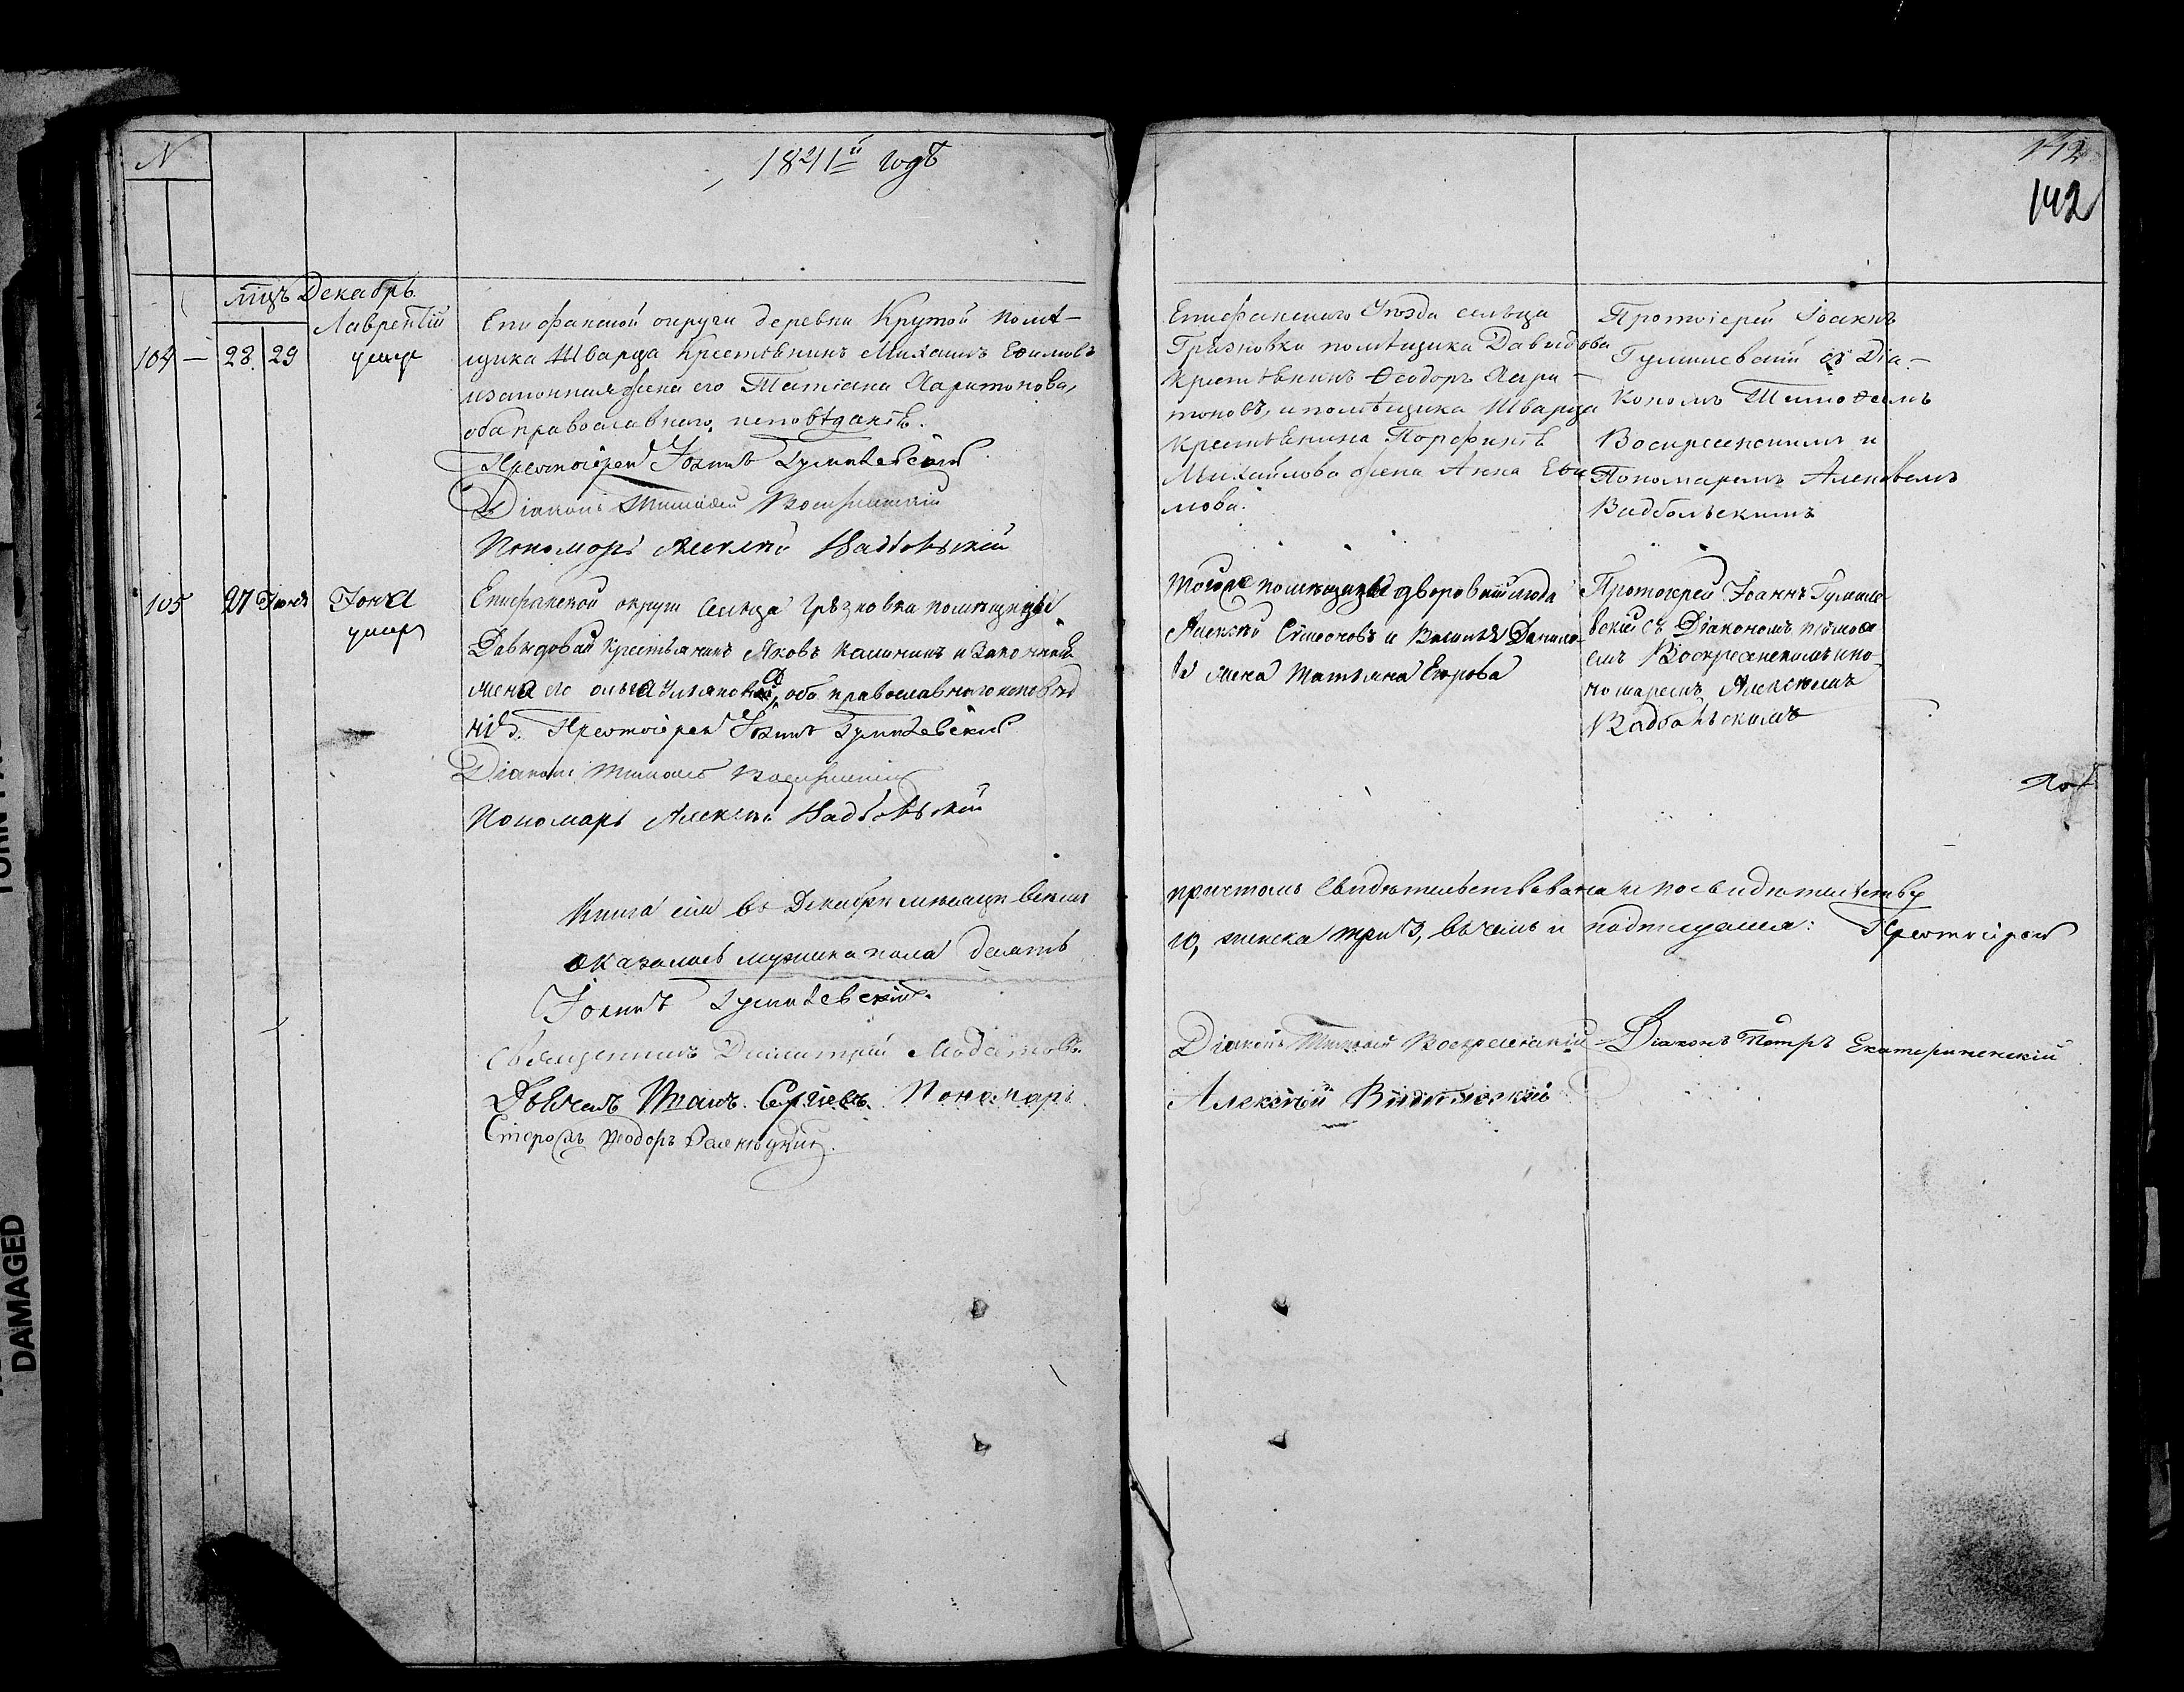 N
1841й годъ
142
142
мцъ Декабрь
104 — 28. 29
Лаврентій
умеръ
Епифанской округи деревни Крутой помѣ-
щика Шварца Крестьянинъ Михаилъ Ефимовъ
и законная жена его Татіана Харитонова,
оба православнаго исповѣданія.
Протоіерей Іоаннъ Гумилевскій
Діаконъ Тимоѳей Воскресенскій
Пономарь Алексѣй Вадбольскій
Епифанскаго Уѣзда сельца
Грязновки помѣщика Давыдова
крестьянинъ Ѳеодоръ Хари-
тоновъ, и помѣщика Шварца
крестьянина Порфирія
Михайлова жена Анна Ефи
мова.
Протоіерей Іоаннъ
Гумилевскій съ Діа-
кономъ Тимоѳеемъ
Воскресенскимъ и
Пономаремъ Алексѣемъ
Вадбольскимъ
105 27
Іона
умеръ
Епифанской округи Сельца Грязновка помѣщицы
Давыдовой Крестьянинъ Яковъ Калининъ и Законная
жена его Ольга Ульянова, оба православнаго исповѣд
нія. Протоіерей Іоаннъ Гумилевскій
Діаконъ Тимоѳей Воскресенскій
Пономарь Алексѣй Вадбольскій
тогоже помѣщицы дворовый
Алексѣй Симеоновъ и Василья Данило-
ва жена Татьяна Егорова
Протоіерей Іоаннъ Гумиле-
вскій съ Діакономъ Тимоѳе
емъ Воскресенскимъ и по-
номаремъ Алексѣемъ
Вадбольскимъ
Книга сія въ Декабрѣ мѣсяцѣ всемъ
причтомъ свидѣтельствована и по свидѣтельству
оказалось мужеска пола десять
10, женска три 3, въ чемъ и подписуемся: Протоіерей
Іоаннъ Гумилевскій.
Священникъ Димитрій
Діаконъ Тимоѳей Воскресенскій Діаконъ Петръ Екатерининскій
Дьячекъ Иванъ Сергіевъ. Пономарь
Алексѣй Вадбольскій
DAMAGED